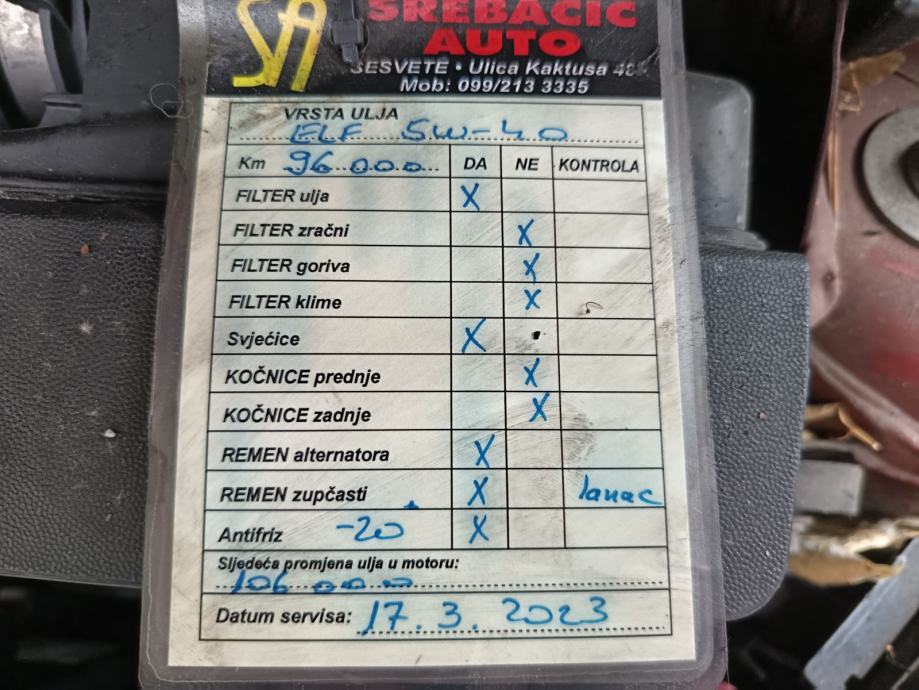 SA
SREBAČIĆ
AUTO
SESVETE • Ulica Kaktusa
Mob: 099/213 3335
VRSTA ULJA
ELF 5W-40
Km 96.000 DA NE KONTROLA
FILTER ulja X
FILTER zračni X
FILTER goriva X
FILTER klime X
Svjećice X
KOČNICE prednje X
KOČNICE zadnje X
REMEN alternatora X
REMEN zupčasti X lanac
Antifriz -20° X
Sljedeća promjena ulja u motoru:
106 000
Datum servisa: 17.3.2023